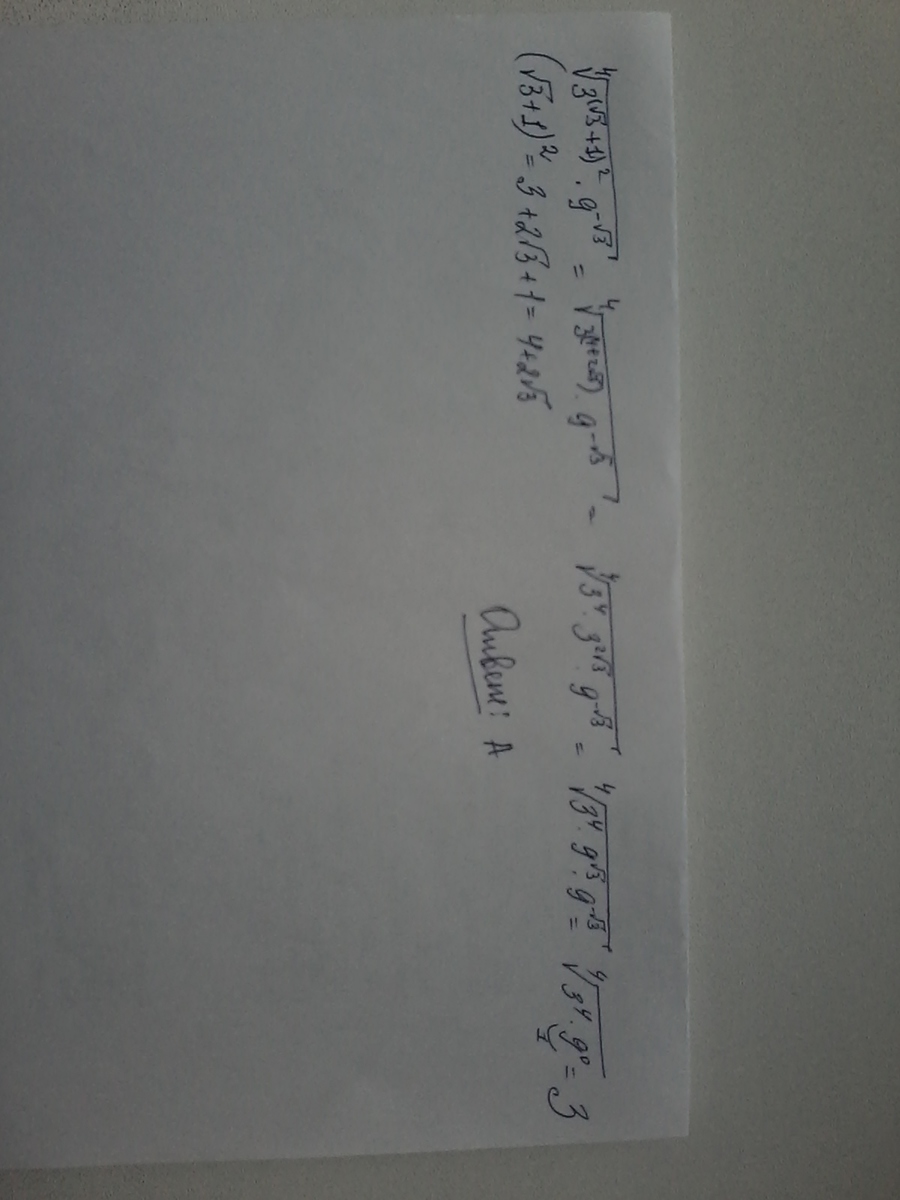 ⁴√(3^(√3+1)² · 9^-√3) = ⁴√(3^(4+2√3) · 9^-√3) = ⁴√(3⁴ · 3^2√3 · 9^-√3) = ⁴√(3⁴ · 9^√3 · 9^-√3) = ⁴√(3⁴ · 9⁰) = 3
1
(√3+1)² = 3+2√3+1 = 4+2√3
Ответ: А